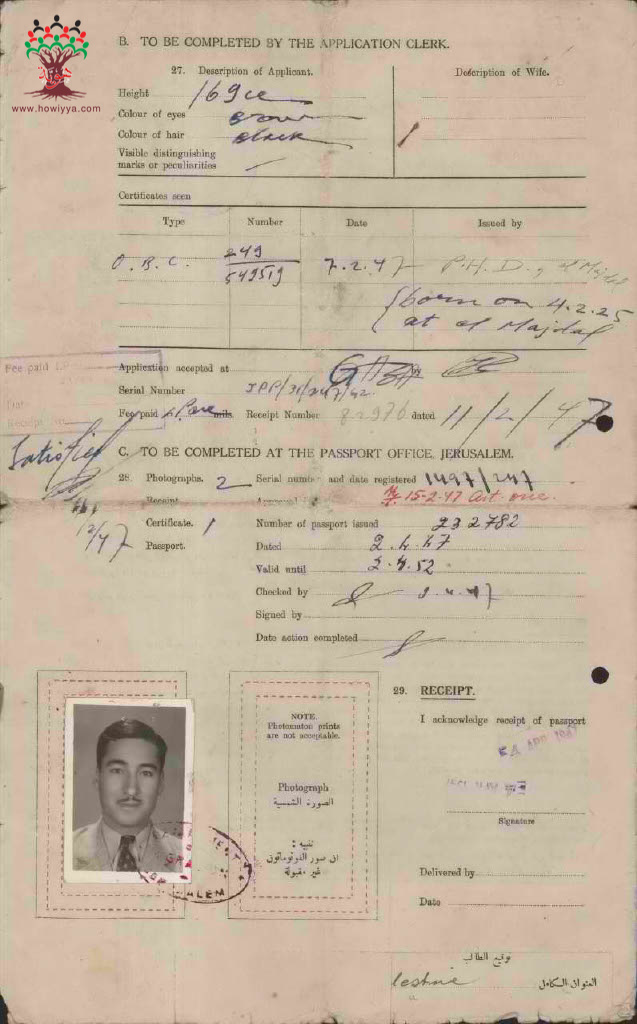 www.howiyya.com
B. TO BE COMPLETED BY THE APPLICATION CLERK.
27. Description of Applicant.
Description of Wife.
Height 169 cm
Colour of eyes brown
Colour of hair black
Visible distinguishing
marks or peculiarities
Certificates seen
Type Number Date Issued by
O.B.C. 249 / 549519 7.2.47 P.H.D. of el Majdal
born on 4.2.25
at el Majdal
Application accepted at GAZA by
Serial Number
Fee paid mils. Receipt Number 82976 dated 11/2/47
Fee paid
Receipt
C. TO BE COMPLETED AT THE PASSPORT OFFICE, JERUSALEM.
28. Photographs. 2 Serial number and date registered 1497/247
Receipt 15-2-47
Certificate. 1 Number of passport issued 232782
12/47
Passport. Dated 2.4.47
Valid until 2.4.52
Checked by 2.4.47
Signed by
Date action completed
NOTE.
Photomaton prints
are not acceptable.
Photograph
الصورة الشمسية
تنبيه :
ان صور الفوتوماتون
غير مقبولة
29. RECEIPT.
I acknowledge receipt of passport
APR 1947
Signature
Delivered by
Date
توقيع الطالب
العنوان الكامل